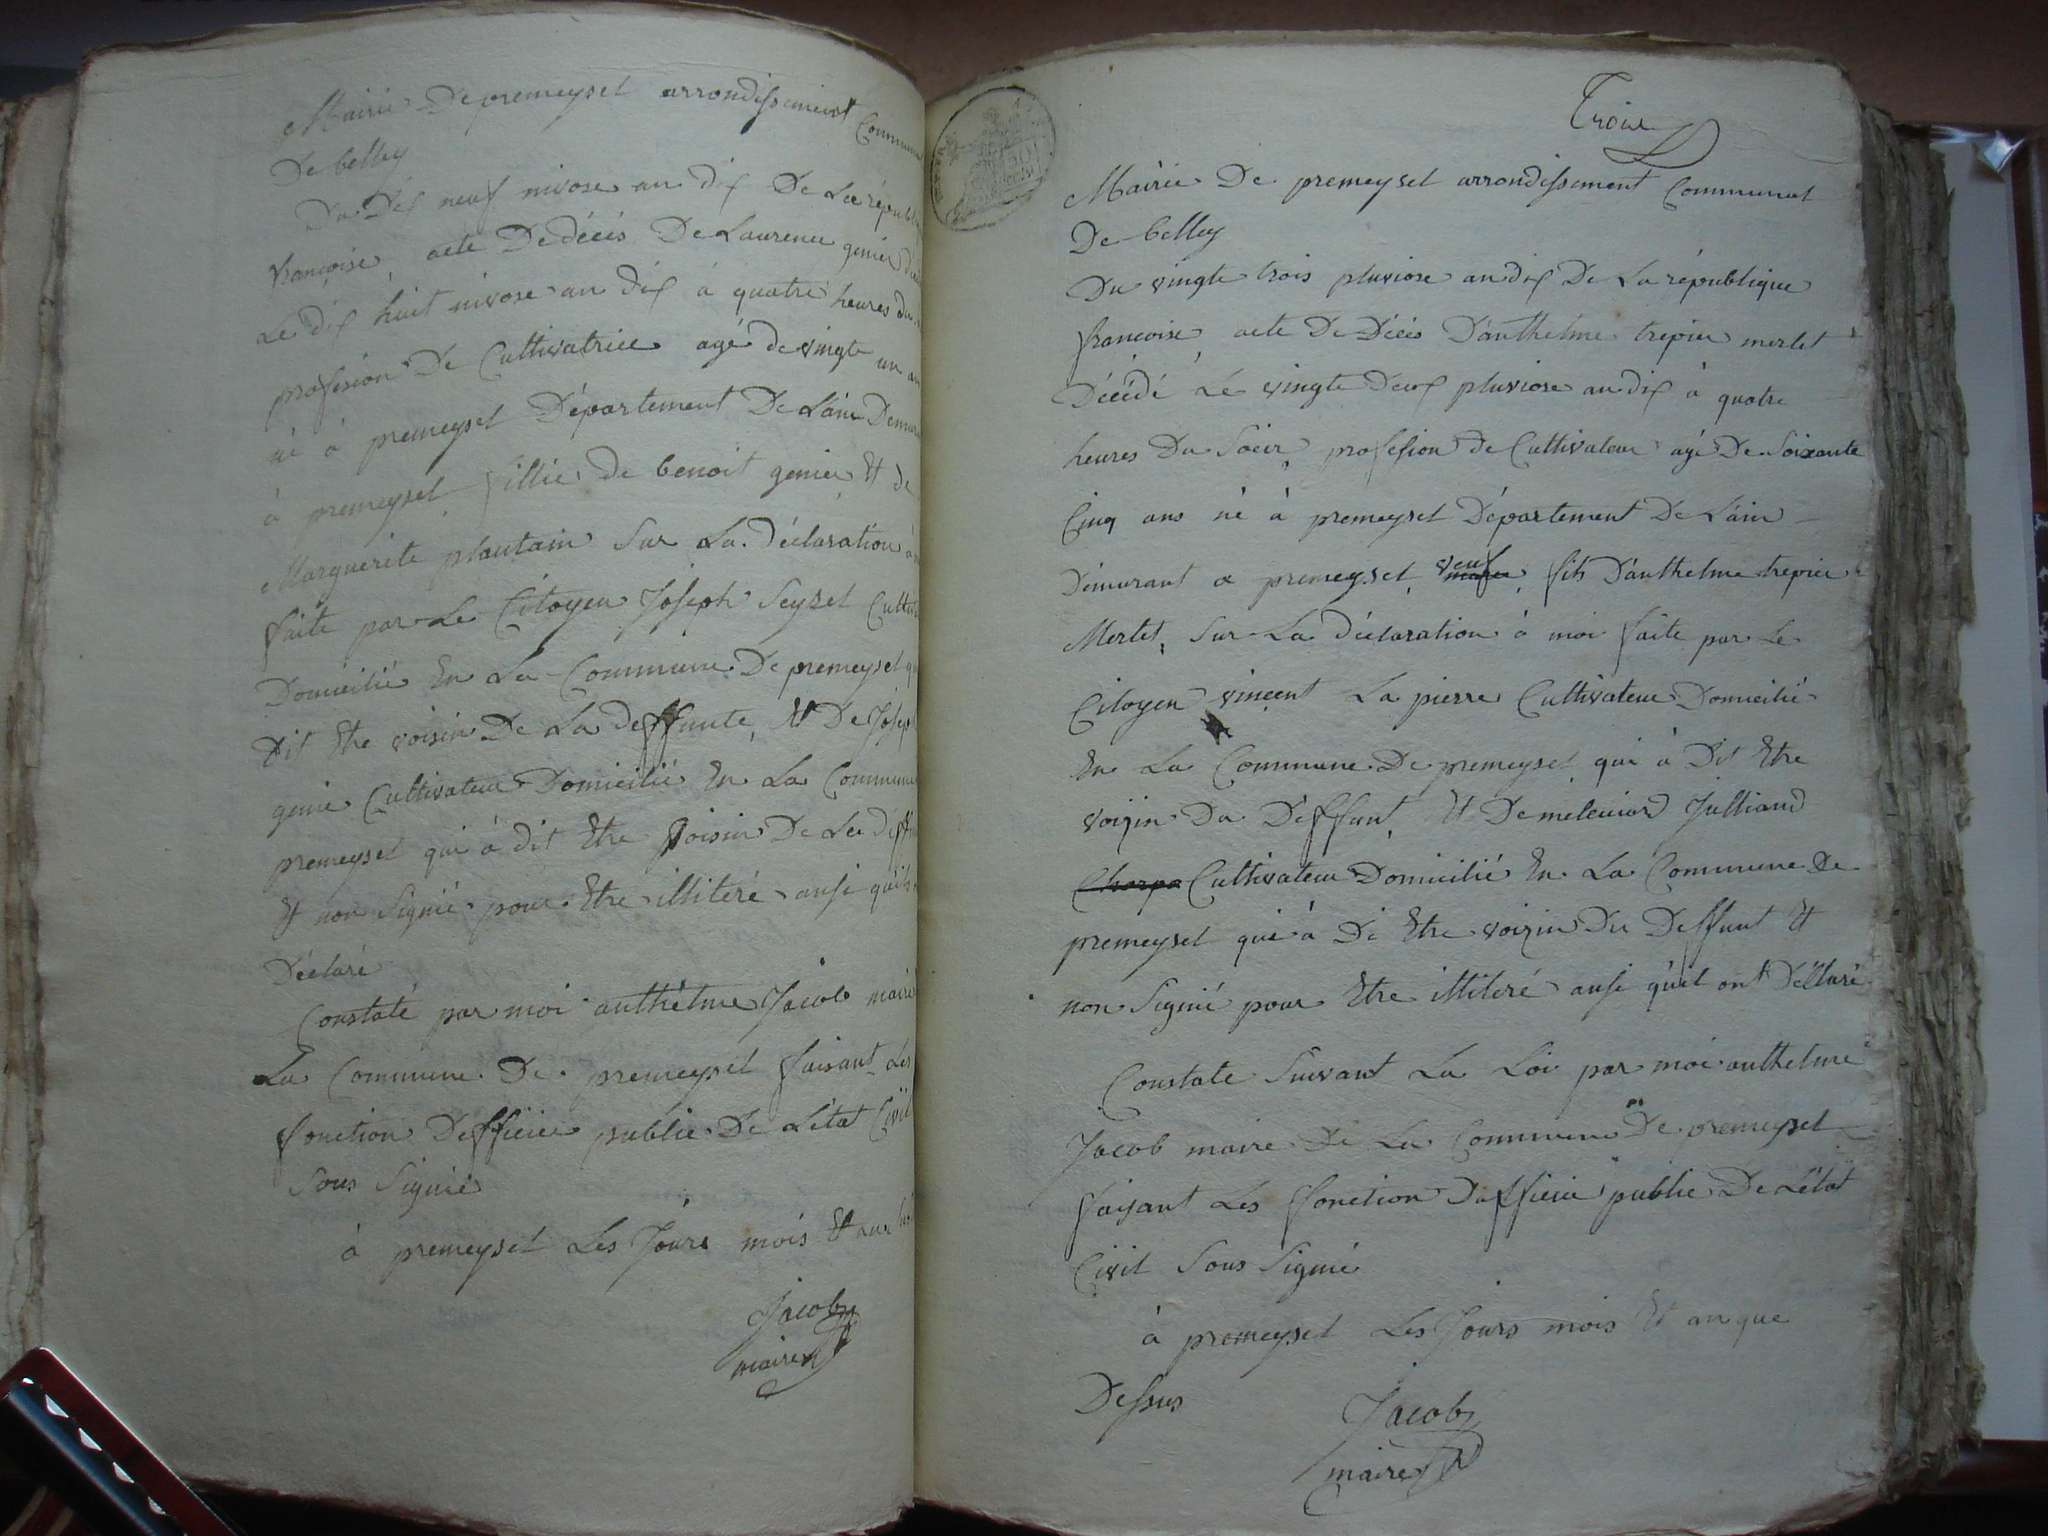 Mairie De premeysel arrondissement Commun
De belley
Du Dix neuf nivose an dix De La républi
françoise, acte De décès De Laurence genie
Le dix huit nivose an dix à quatre heures du
profesion De Cultivatrice agé de vingte un an
né à premeysel Département De L'ain Demur
à premeysel fillie de benoit genie Et de
Marguerite plantain Sur La déclaration à
faite par Le Citoyen Joseph Seyzel Cultiv
Domicilié En La Commune De premeysel q
dit Etre voisin De La deffunte, Et De Josep
genie Cultivateur Domicilié En La Commune
premeysel qui à dit Etre voisin De La deffu
Et non Signié pour Etre illiteré ausi quils
Déclaré
Constaté par moi anthelme Jacob maire
La Commune De premeysel faisant Les
fonction Dofficier public De L'état Civil
Sous Signié
à premeysel Les Jours mois Et an
Jacob
maire
Trois
Mairie De premeysel arrondissement Communal
De belley
Du vingte trois pluviose an dix De La république
françoise, acte De Décès D'anthelme trepier merlet
Décédé Le vingte Deux pluviose an dix à quatre
heures Du Soir, profesion de Cultivateur agé De Soixante
Cinq ans né à premeysel Département De L'ain
Démurant a premeysel, veuf, fils D'anthelme trepier
Merlet, Sur La déclaration à moi faite par Le
Citoyen vincent La pierre Cultivateur Domicilié
En La Commune De premeysel qui à Dit Etre
voizin Du Deffunt, Et De melcuior Julliand
Charpa Cultivateur Domicilié En La Commune De
premeysel qui à Di Etre voizin Du Deffunt Et
non Signié pour Etre illiteré ausi qu'il ont Déclaré
Constate Suivant La Loi par moi anthelme
Jacob maire De La Commune De premeysel
faisant Les fonction Dofficié public De L'état
Civil Sous Signié
à premeysel Les Jours mois Et an que
Dessus
Jacob
maire